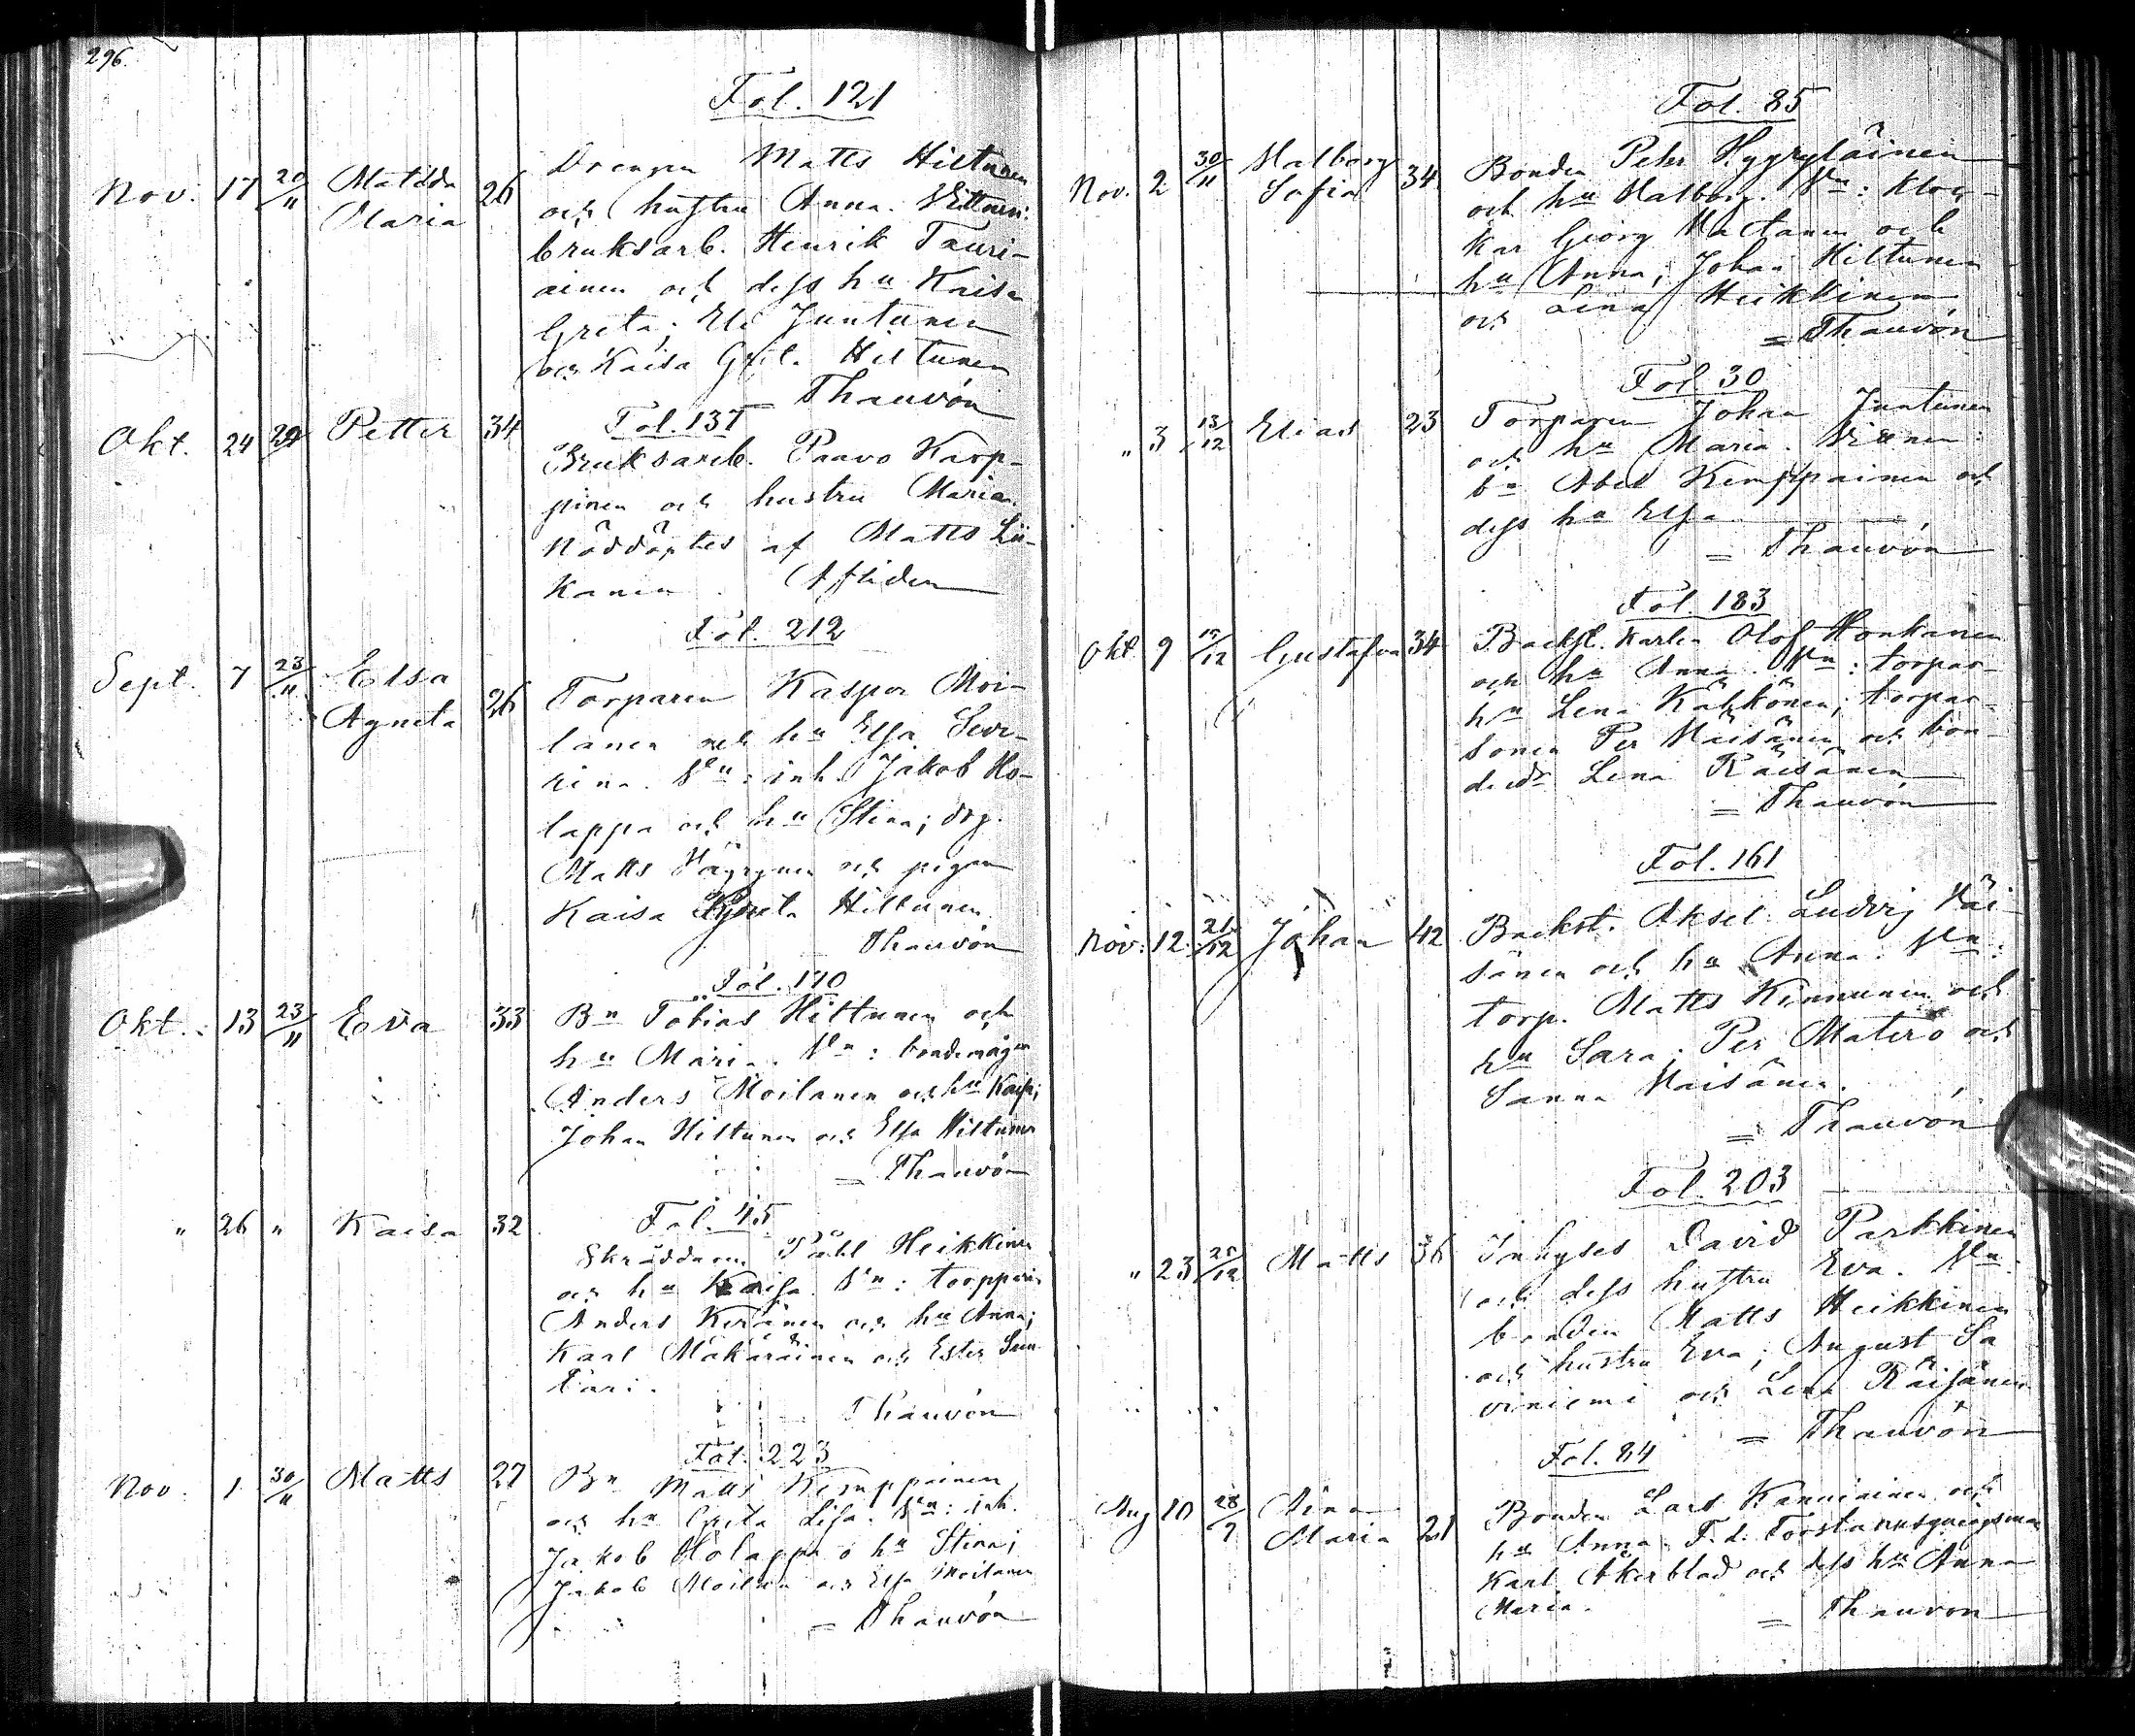 296.
Fol. 121
Nov. 17 20/11 Matilda Maria 26 Drengen Matts Hiltunen
och hustru Anna. Vittnen:
bruksarb. Henrik Tauri-
ainen och dess hu Kaisa
Greta; Juntunen
och Kaisa Hiltunen
Thauvón
Fol. 137
Okt. 24 29 Petter 34 Bruksarb. Paavo Karp-
pinen och hustru Maria.
Nöddöptes af Matts Lii-
kanen. Afliden
Fol. 212
Sept. 7 23/11 Elsa Agneta 26 Torparen Kasper Moi-
lanen och hu Elsa Seve-
rina. Vn: inh. Jakob Ho-
lappa och hu Stina; drg.
Matts Häyrynen och pigan
Kaisa Hiltunen
Thauvón
Fol. 170
Okt. 13 23/11 Eva 33 Bn Tobias Hiltunen och
hu Maria. Vn: bondemågen
Anders Moilanen och hu Kaisa;
Johan Hiltunen och Elsa Hiltunen
= Thauvón
Fol. 45
" 26 " Kaisa 32 Skräddaren Påhl Heikkinen
och hu Kaisa. Vn: torparen
Anders Keränen och hu Anna;
Karl Mäkäräinen och Ester Sun-
tari.
Thauvón
Fol. 223
Nov. 1 30/11 Matts 27 Bn Matts Kemppainen
och hu Greta Lisa. Vn: inh.
Jakob Holappa o hu Stina;
Jakob Moilanen och Elsa Moilanen
= Thauvón
Fol. 85
Nov. 2 30/11 Walborg Sofia 34 Bonden Pehr Hyyryläinen
och hu Walborg. Vn: kloc-
kar Georg och
hu Anna; Johan Hiltunen
och Lena Heikkinen
= Thauvón
Fol. 30
" 3 13/12 Elias 23 Torparen Johan Juntunen
och hu Maria. Vittnen:
bn Abel Kemppainen och
dess hu Elsa
= Thauvón
Fol. 183
Okt 9 /12 Gustafva 34 Backst. karlen Olof Honkanen
och hu Anna. Vn: torpar-
hu Lena Kähkönen; torpar-
sonen Per Väisänen och bon-
dedr Lena Räisänen
= Thauvón
Fol. 161
Nov. 12 21/12 Johan 42 Backst. Aksel Ludvig Väi-
sänen och hu Anna. Vn:
torp. Matts Kinnunen och
hu Sara; Per Matero och
Sanna Väisänen.
= Thauvón
Fol. 203
" 23 /12 Matts 36 Inhyses David Parkkinen
och dess hustru Eva. Vn:
bonden Matts Heikkinen
och hustru Eva; August Sa
viniemi och Lena Räisänen
= Thauvón
Fol. 84
Aug 10 28/9 Aina Maria 21 Bonden Lars Kanniainen och
hu Anna. F. d.
Karl Åkerblad och dess hu Anna
Maria.
= Thauvon